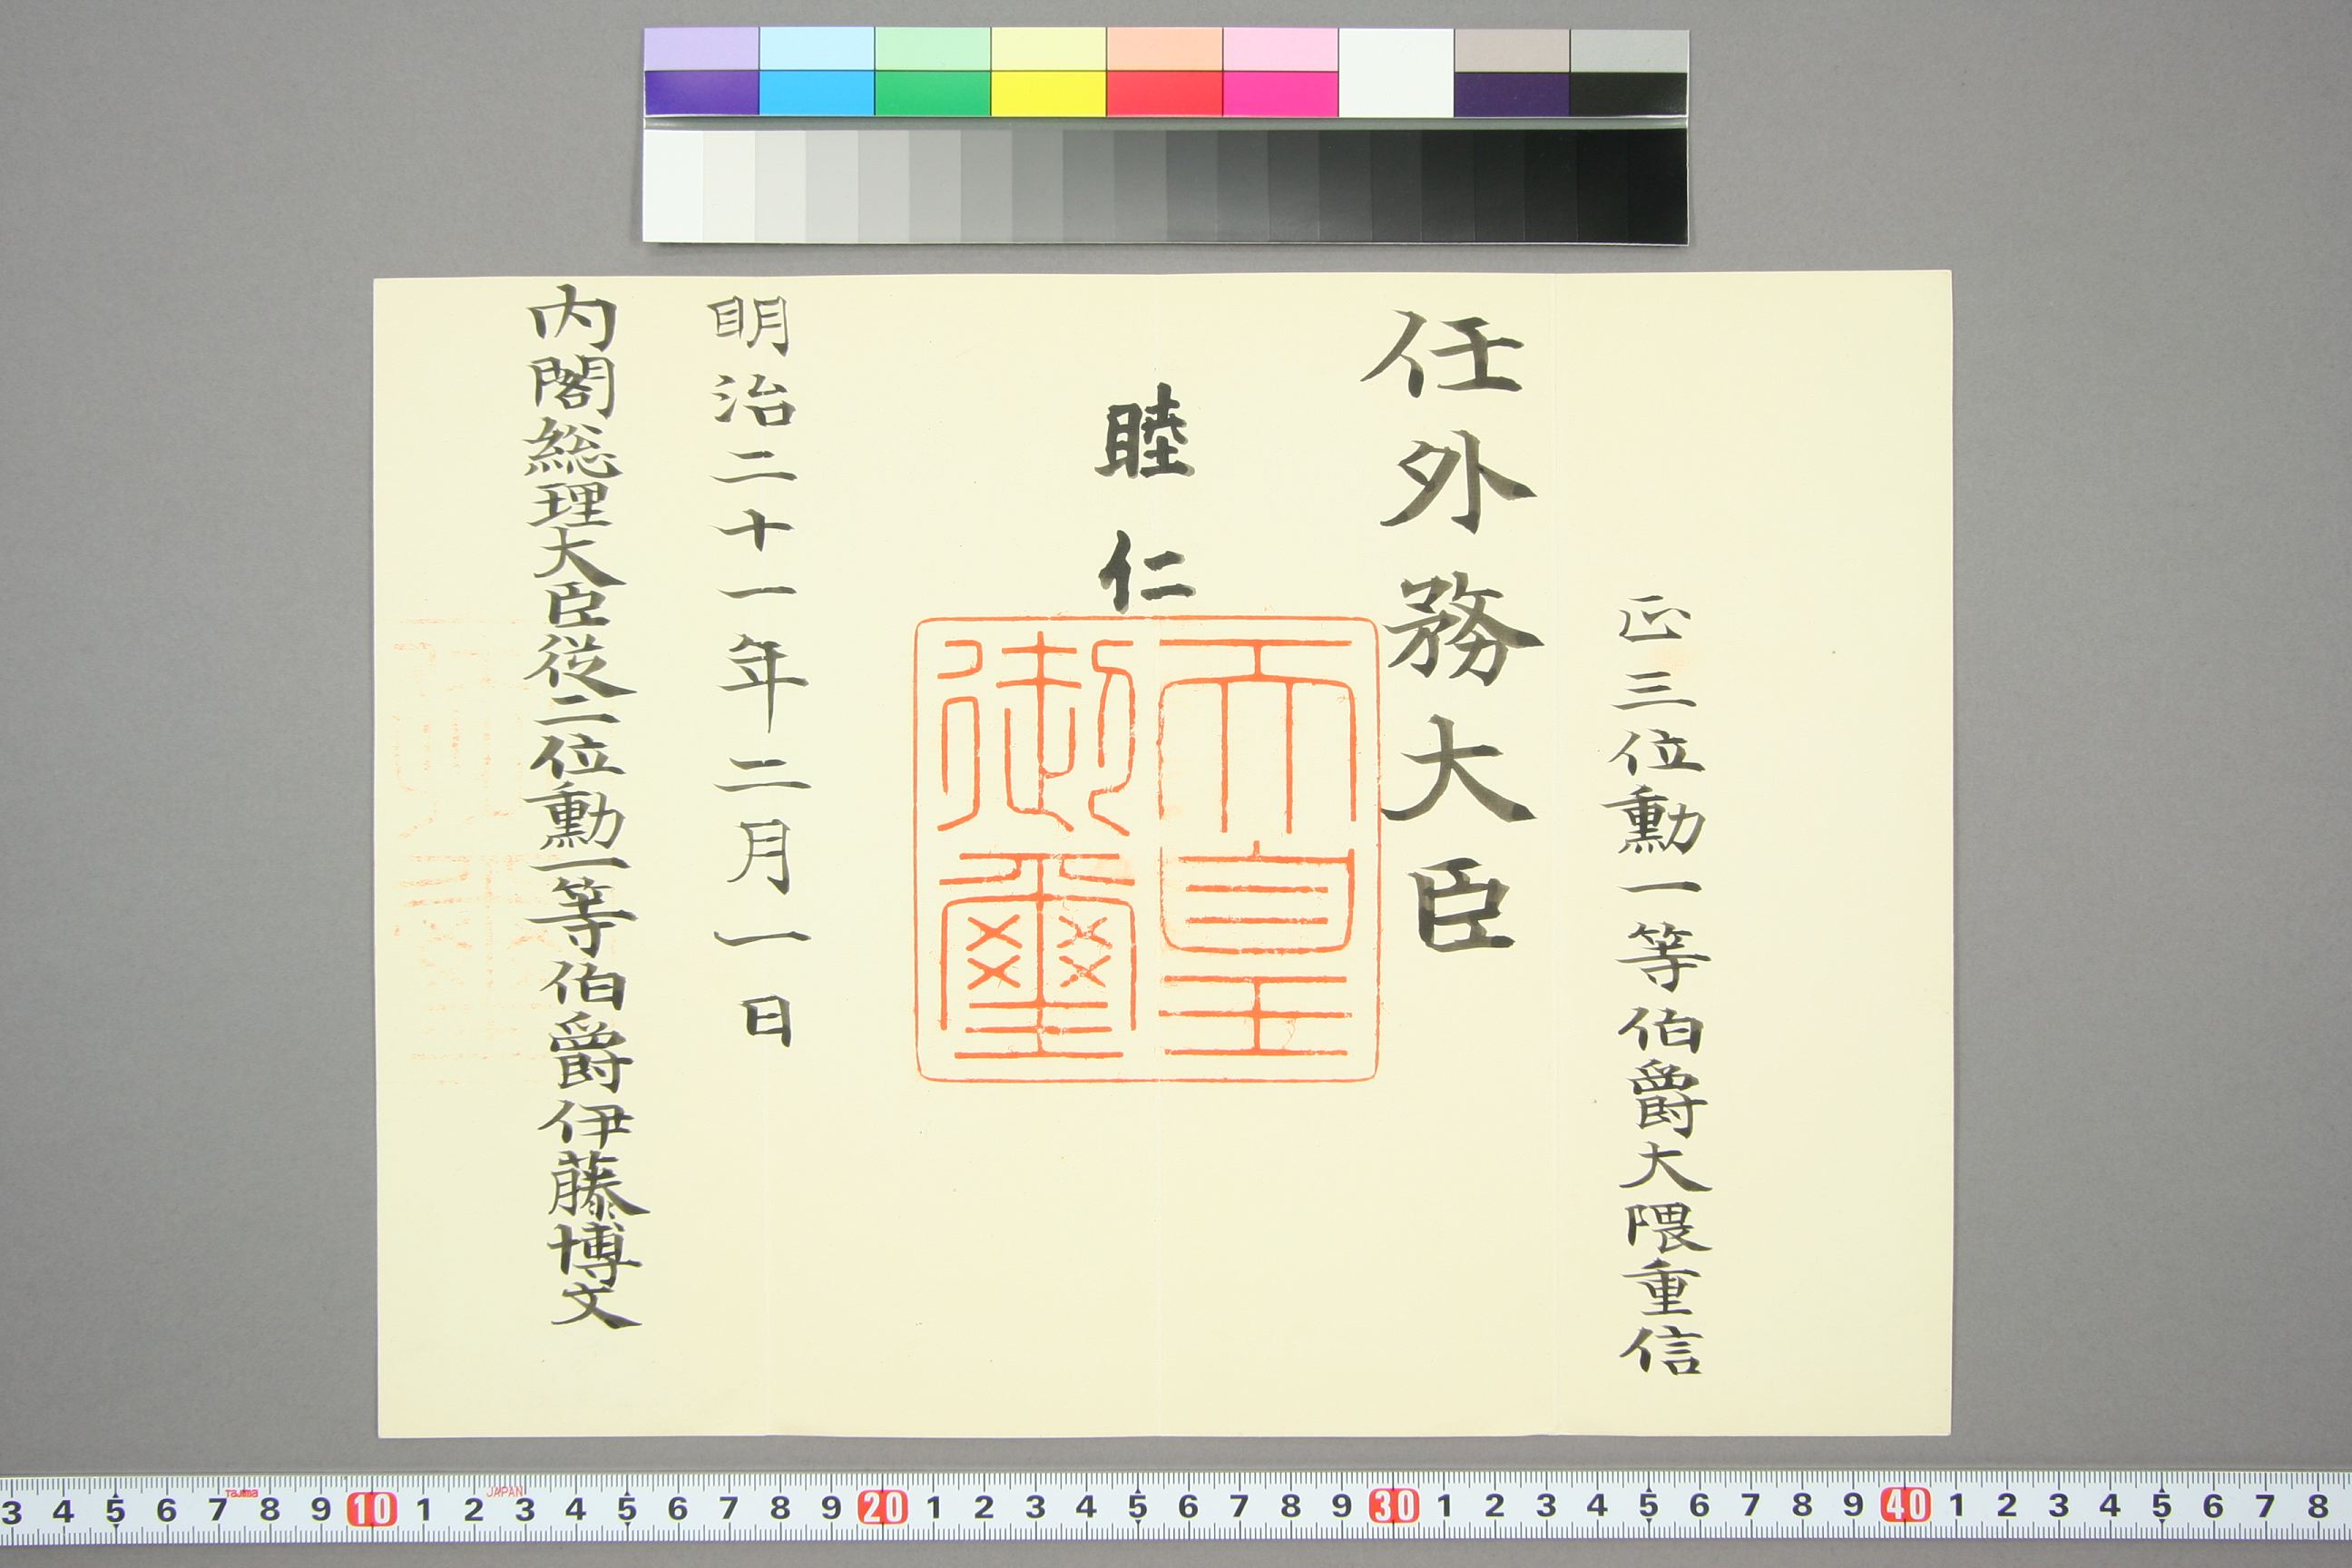 正三位勳一等伯爵大隈重信
任外務大臣
睦仁
天皇御璽
明治二十一年二月一日
内閣総理大臣従二位勳一等伯爵伊藤博文
3 4 5 6 7 8 9 10 1 2 3 4 5 6 7 8 9 20 1 2 3 4 5 6 7 8 9 30 1 2 3 4 5 6 7 8 9 40 1 2 3 4 5 6 7 8
Tajima JAPAN